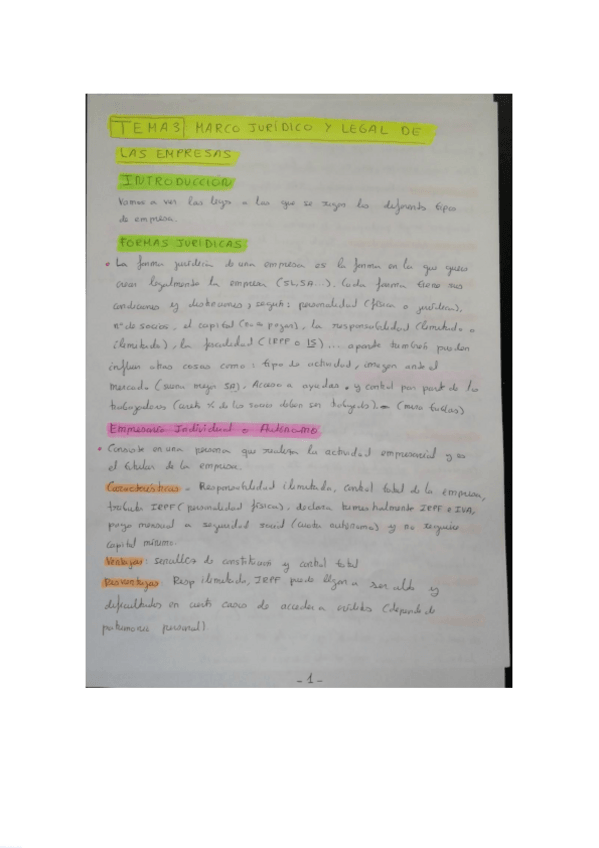 TEMA3 MARCO JURÍDICO Y LEGAL DE
LAS EMPRESAS
INTRODUCCIÓN
Vamos a ver las leyes a las que se rigen los diferentes tipos
de empresa.
FORMAS JURÍDICAS
• La forma jurídica de una empresa es la forma en la que quiero
crear legalmente la empresa (SL, SA...). Cada forma tiene sus
condiciones y distinciones, según: personalidad (física o jurídica),
nº de socios, el capital (a pagar), la responsabilidad (limitada o
ilimitada), la fiscalidad (IRPF o IS)... aparte también pueden
influir otras cosas como: tipo de actividad, imagen ante el
mercado (suena mejor SA), Acceso a ayudas. y control por parte de los
trabajadores (% de los socios deben ser) (mirar tablas)
Empresario Individual o Autónomo
• Consiste en una persona que realiza la actividad empresarial y es
el titular de la empresa.
Características - Responsabilidad ilimitada, control total de la empresa,
tributa IRPF (personalidad física), declara trimestralmente IRPF e IVA,
pago mensual a seguridad social (cuota autónomo) y no requiere
capital mínimo.
Ventajas: sencillez de constitución y control total
Desventajas: Resp ilimitada, IRPF puede llegar a ser alto y
dificultades en cierto casos de acceder a créditos (depende de
patrimonio personal)
- 1 -